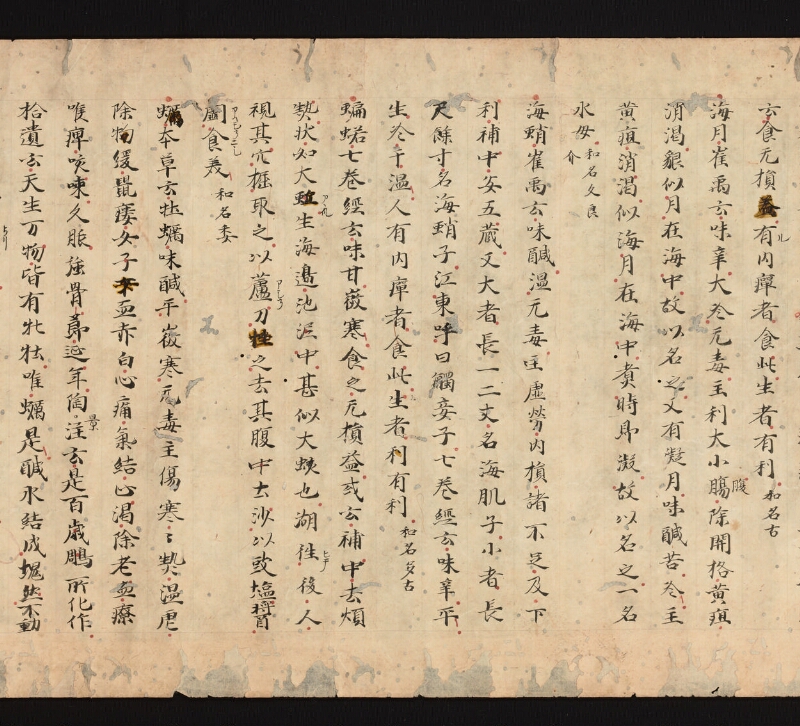 云食无損益有内癉者食此生者有利 和名古
海月崔禹云味辛大冷无毒主利大小腸除關格黄疸
消渇貌似月在海中故以名之又有凝月味鹹苦冷主
黄疸消渇似海月在海中煮時即凝故以名之一名
水母 和名久良介
海蛸崔禹云味鹹温无毒主虚勞内損諸不足及下
利補中安五蔵又大者長一二丈名海肌子小者長
尺餘寸名海蛸子江東呼曰觸妾子七巻經云味辛平
生冷干温人有内癉者食此生者利有利 和名多古
蝙蛣七巻經云味甘微寒食之无損益或云補中去煩
熱状如大蛭生海邉池泥中甚似大蛭也湖往後人
視其穴掘取之以蘆刀之去其腹中去沙以致塩醤
食美 和名委
蠣本草云牡蠣味鹹平微寒无毒主傷寒々熱温瘧
除物緩鼠瘻女子血赤白心痛氣結心渇除老血療
喉痺咳嗽久服強骨節延年陶注云是百歳鵰所化作
拾遺云天生万物皆有牝牡唯蠣是鹹水結成塊然不動